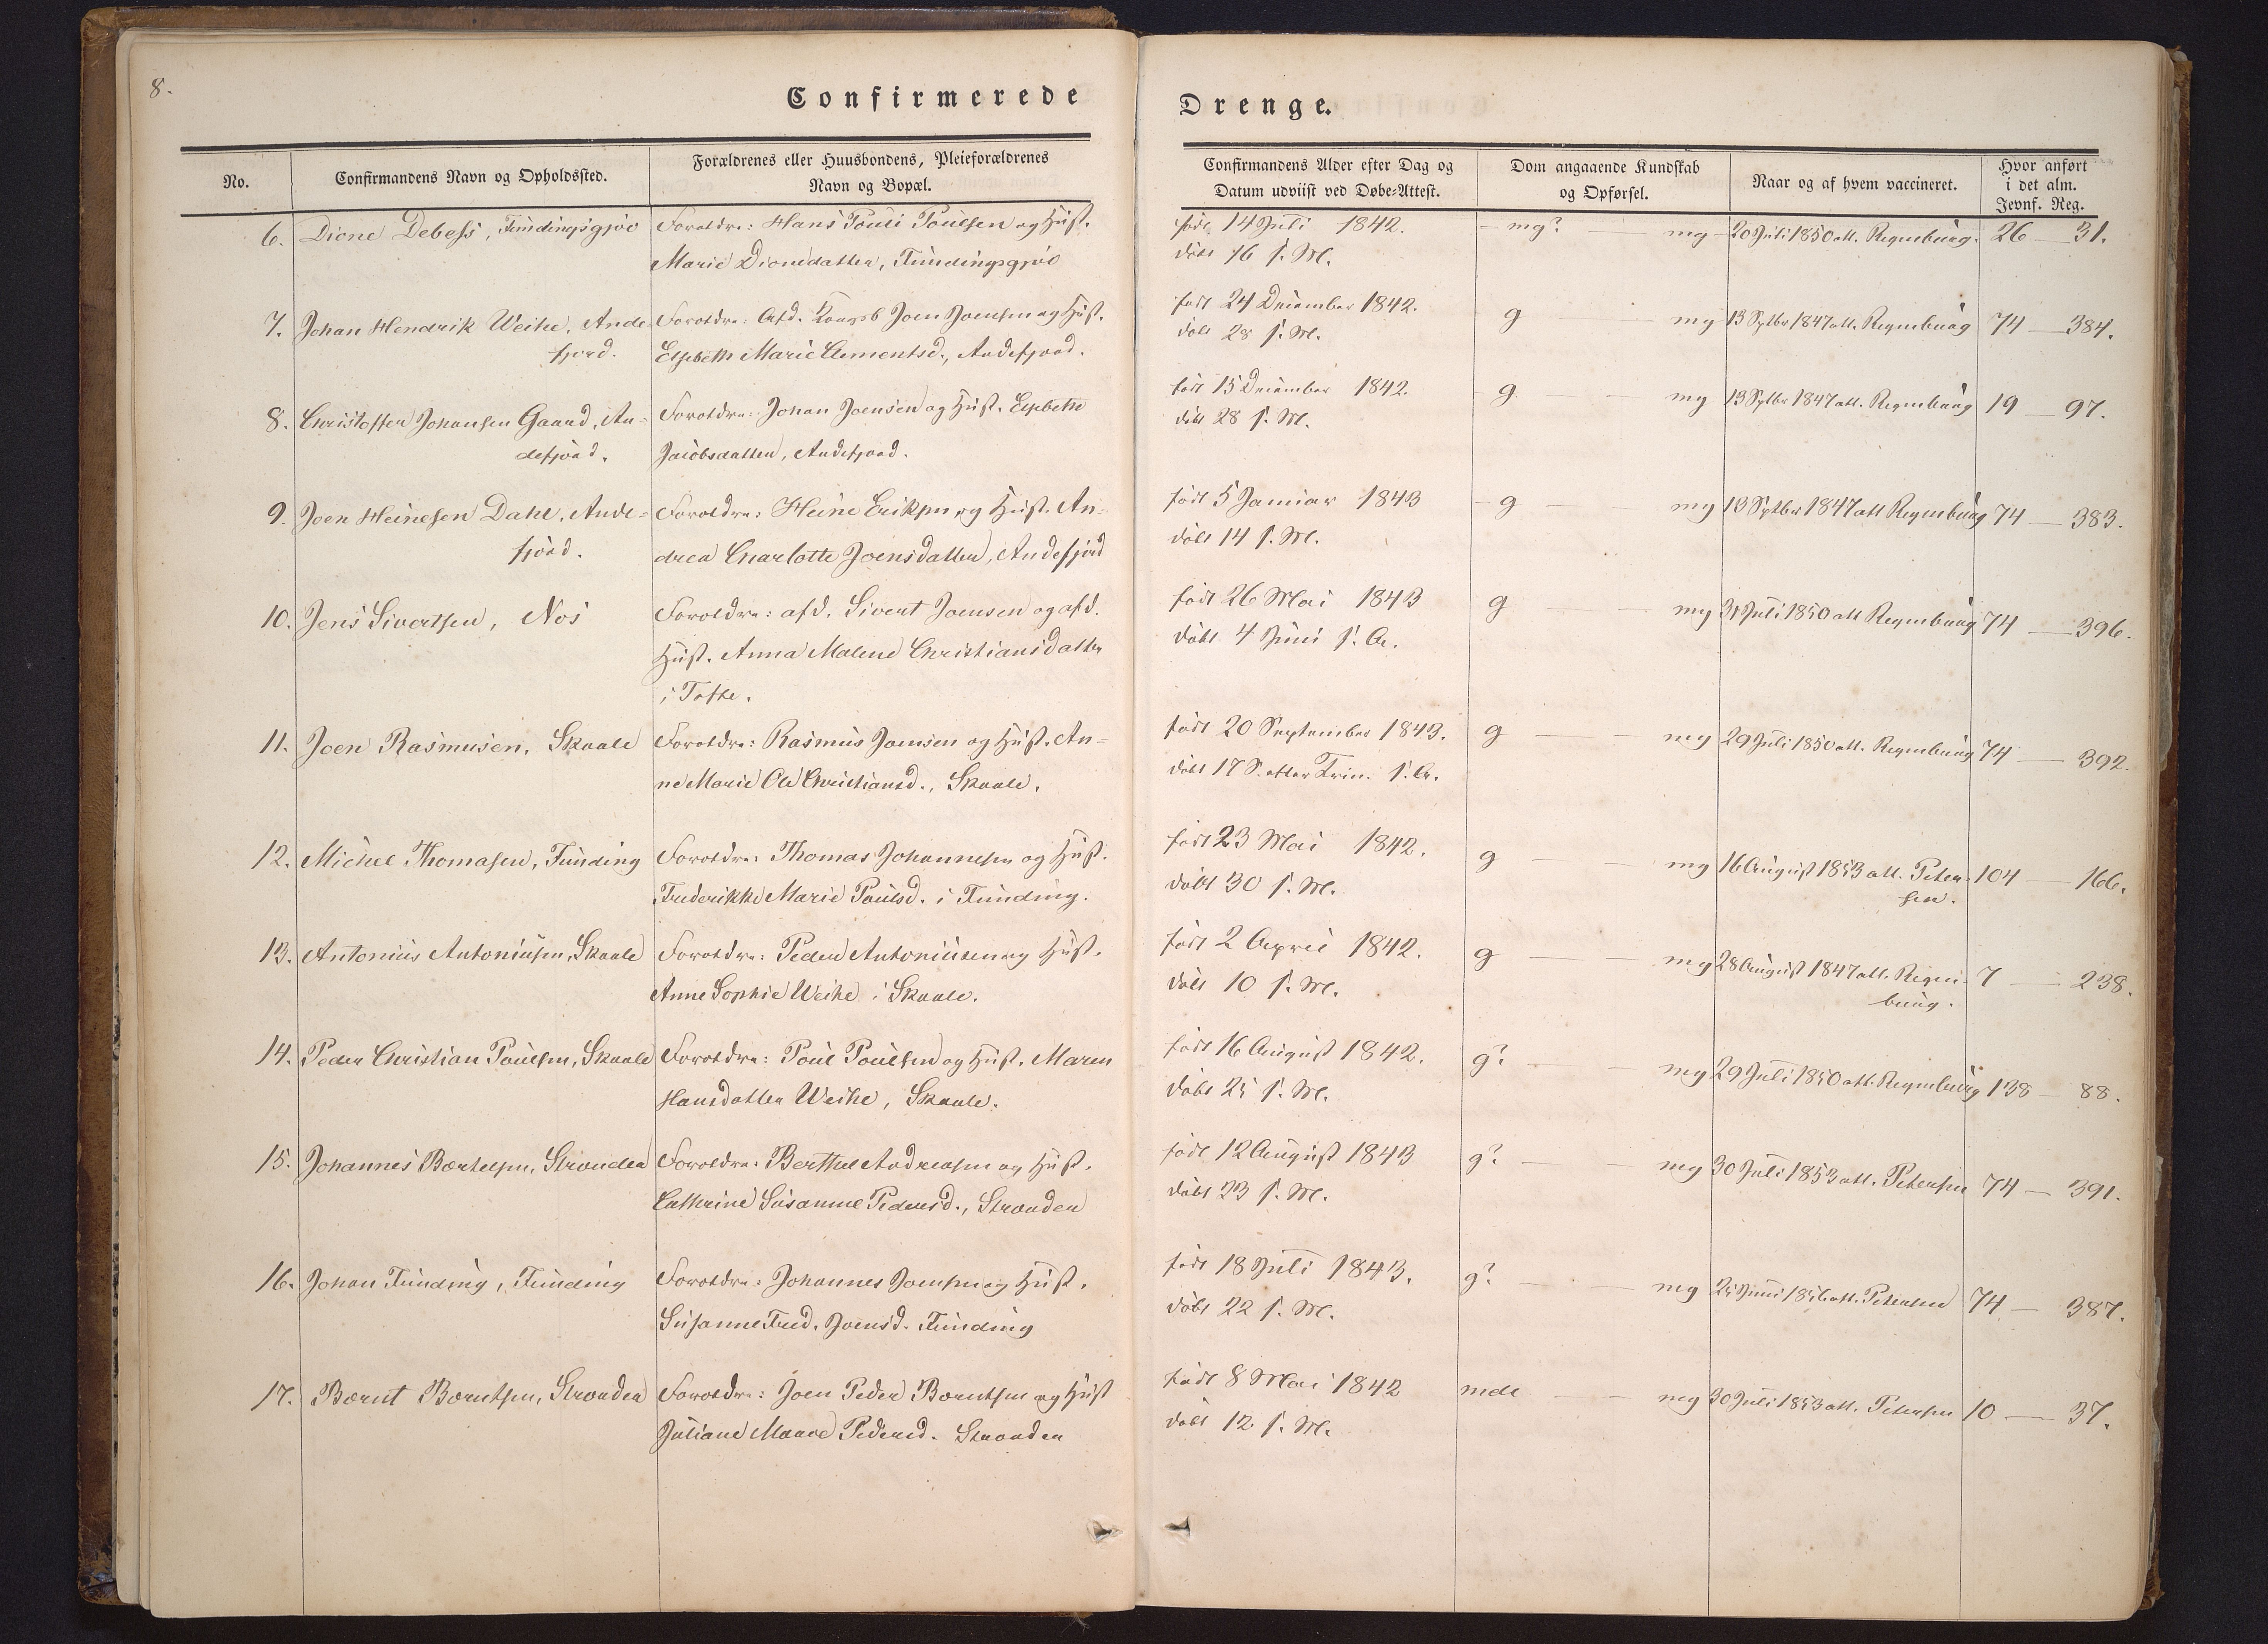 8.
Confirmerede Drenge.
No.
Confirmandens Navn og Opholdssted.
Forældrenes eller Huusbondens, Pleieforældrenes
Navn og Bopæl.
Confirmandens Alder efter Dag og
Datum udviist ved Døbe-Attest.
Dom angaaende Kundskab
og Opførsel.
Naar og af hvem vaccineret.
Hvor anført
i det alm.
Jevnf. Reg.
6. Dione Debess, Fundingsgjov Foroldre: Hans Pouli Poulsen og Hust. født 14 Juli 1842. mg? mg 20 Juli 1850 att. Regenburg. 26 — 31.
Marie Dionedatter, Fundingsgjov døbt 16 s. M.
7. Johan Hendrik Weihe, Ande- Foroldre: Afd. Kongsb Joen Joensen og Hust. født 24 December 1842. g mg 13 Sptbr 1847 att. Regenburg 74 — 384.
fjord. Elsebeth Marie Clementsd., Andefjord. døbt 28 s. M.
8. Christoffer Johansen Gaard, An- Foroldre: Johan Joensen og Hust. Elsbeth født 15 December 1842. g mg 13 Sptbr 1847 att. Regenburg 19 — 97.
defjord. Jacobsdatter, Andefjord. døbt 28 s. M.
9. Joen Heinesen Dahl, Ande- Foroldre: Heine Eriksen og Hust. An- født 5 Januar 1843 g mg 13 Sptbr 1847 att Regenburg 74 — 383.
fjord. drea Charlotte Joensdatter, Andefjord døbt 14 s. M.
10. Jens Sivertsen, Nos Foroldre: afd. Sivert Joensen og afd. født 26 Mai 1843 g mg 31 Juli 1850 att Regenburg 74 — 396.
Hust. Anna Malene Christiansdatter døbt 4 Juni s. A.
i Tofte.
11. Joen Rasmusen, Skaale Foroldre: Rasmus Joensen og Hust. An- født 20 September 1843. g mg 29 Juli 1850 att. Regenburg 74 — 392.
ne Marie Ole Christiansd., Skaale. døbt 17 S. efter Trin. s. A.
12. Michel Thomasen, Funding Foroldre: Thomas Johannesen og Hust. født 23 Mai 1842. g mg 16 August 1853 att. Peter- 104 — 166.
Frederikke Marie Poulsd. i Funding. døbt 30 s. M. sen.
13. Antonius Antoniusen, Skaale Foroldre: Peder Antoniusen og Hust. født 2 April 1842. g mg 28 August 1847 att. Regen- 7 — 238.
Anne Sophie Weihe i Skaale. døbt 10 s. M. burg.
14. Peder Christian Poulsen, Skaale Foroldre: Poul Poulsen og Hust. Maren født 16 August 1842. g? mg 29 Juli 1850 att. Regenburg 138 — 88.
Hansdatter Weihe, Skaale. døbt 25 s. M.
15. Johannes Bærtelsen, Strænder Foroldre: Berthel Andreasen og Hust. født 12 August 1843 g? mg 30 Juli 1853 att. Petersen 74 — 391.
Cathrine Susanne Pedersd., Strænder døbt 23 s. M.
16. Johan Funding, Funding Foroldre: Johannes Joensen og Hust. født 18 Juli 1843. g? mg 25 Juni 1856 att. Petersen 74 — 387.
Susanne Fred. Joensd. Funding døbt 22 s. M.
17. Bærnt Bærntsen, Strænder Foroldre: Joen Peder Bærntsen og Hust født 8 Mai 1842 mdl mg 30 Juli 1853 att. Petersen 10 — 37.
Juliane Maare Pedersd. Strænder døbt 12 s. M.